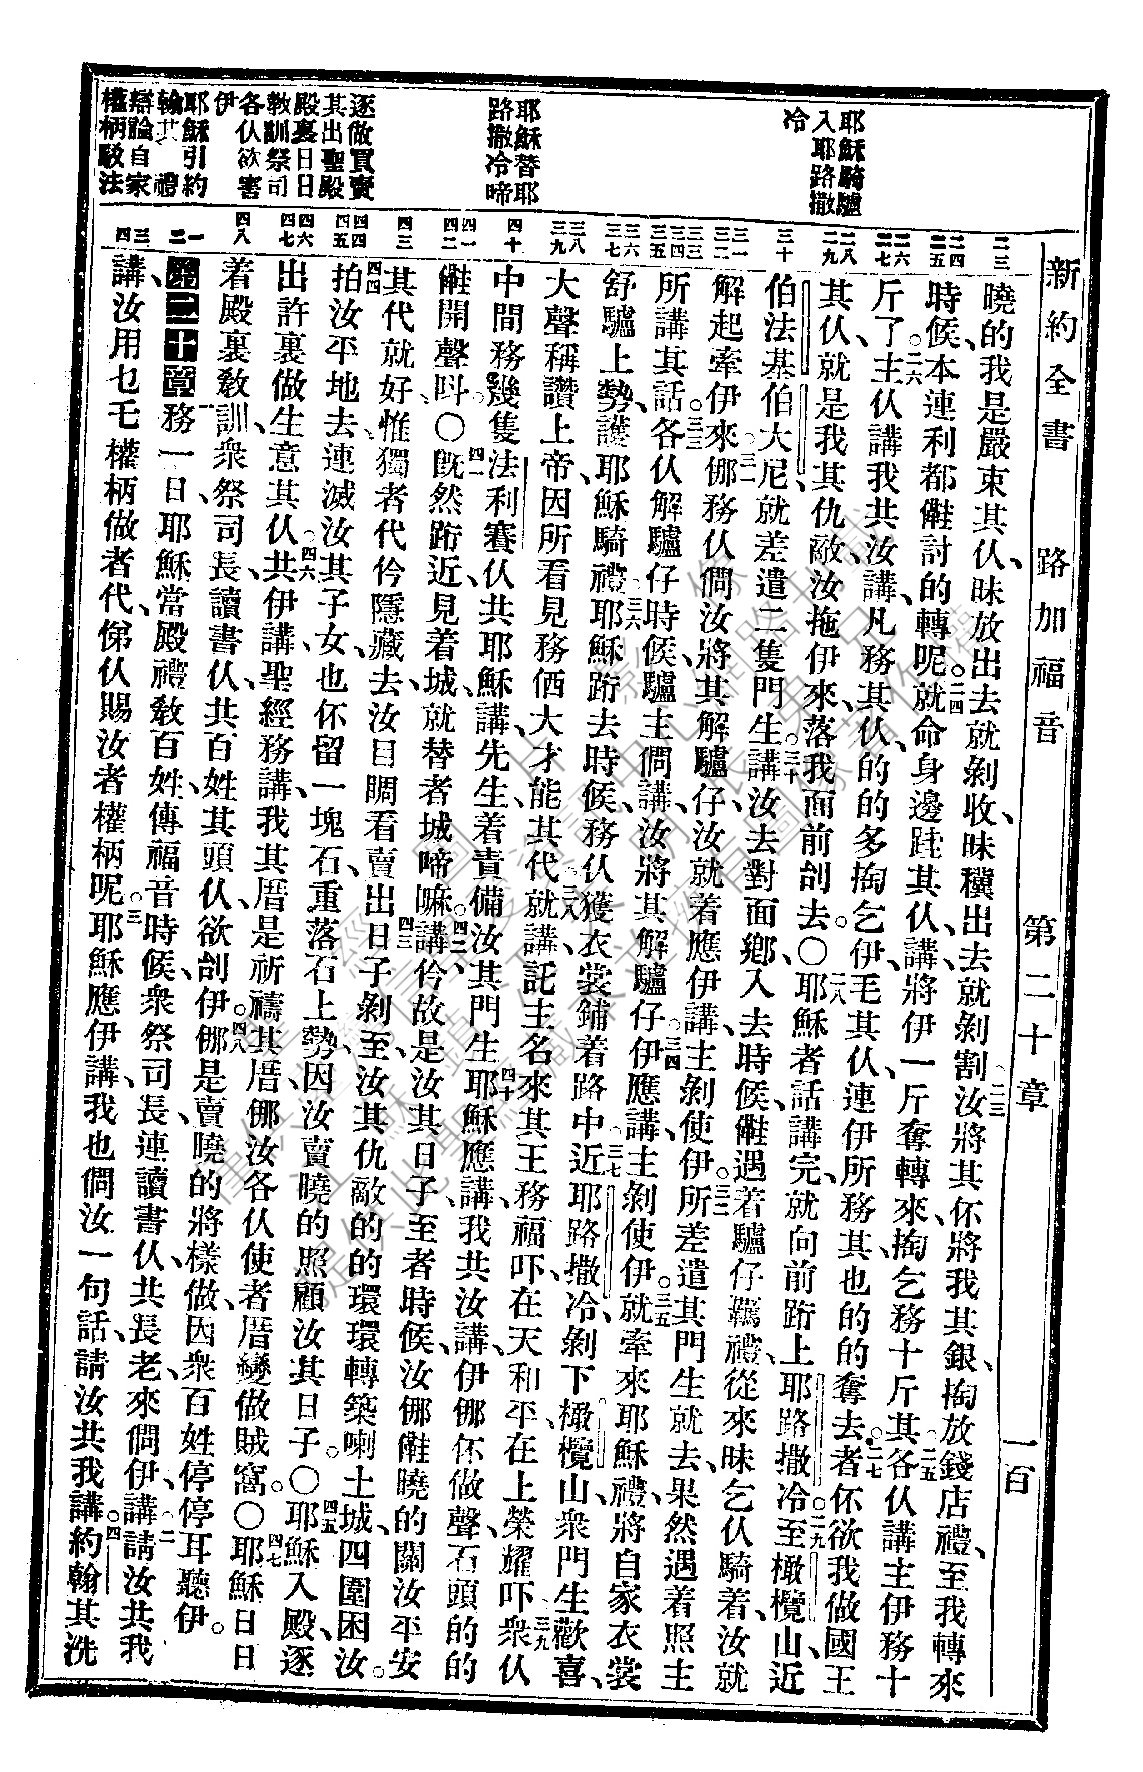 新約全書　路加福音　第二十章　一百
耶穌騎驢
入耶路撒
冷
耶穌替耶
路撒冷啼
逐做買賣
其出聖殿
殿裏日日
敎訓祭司
各仈欲害
伊
耶穌引約
翰其禮
辯論自家
權柄駁法
二三
二四 二五
二六 二七
二八 二九
三十
三一 三二
三三 三四 三五
三六 三七
三八 三九
四十
四一 四二
四三
四四 四五
四六 四七
四八
一 二
三 四
曉的我是嚴束其仈、昧放出去就剝收昧穬出去就剝割二三汝將其伓將我其銀、掏放錢店禮、至我轉來
時候本連利都㑃討的轉呢。二四就命身邊跬其仈、講將伊一斤奪轉來、掏乞務十斤其。二五各仈講主伊務十
斤了。二六主仈講我共汝講、凡務其仈、的的多掏乞伊、毛其仈、連伊所務其也的的奪去。二七者伓欲我做國王
其仈、就是我其仇敵、汝拖伊來落我面前刣去。〇二八耶穌者話講完、就向前跸上耶路撒冷。二九至橄欖山、近
伯法基伯大尼、就差遣二隻門生講、三十汝去對面鄉、入去時候、㑃遇着驢仔羈禮、從來昧乞仈騎着、汝就
解起牽伊來。三一倘務仈㗂汝、將其解驢仔、汝就着應伊講、主剝使伊。三二所差遣其門生就去、果然遇着照主
所講其話。三三各仈解驢仔時候、驢主㗂講、汝將其解驢仔。三四伊應講、主剝使伊。三五就牽來耶穌禮、將自家衣裳
舒驢上勢、護耶穌騎禮。三六耶穌跸去時候、務仈獲衣裳鋪着路中。三七近耶路撒冷、剝下橄欖山、衆門生歡喜、
大聲稱讚上帝、因所看見務偌大才能其代、三八就講、託主名來其王務福吓、在天和平、在上榮耀吓。三九衆仈
中間務幾隻法利賽仈、共耶穌講、先生着責備汝其門生。四十耶穌應講、我共汝講、伊倘伓做聲、石頭的的
㑃開聲呌。〇四一旣然跸近、見着城、就替者城啼嘛、四二講、伶故是汝其日子、至者時候、汝倘㑃曉的關汝平安
其代就好、惟獨者代伶隱藏去汝目睭看賣出。四三日子剝至、汝其仇敵的的環環轉築喇土城、四圍困汝。
四四拍汝平地去、連滅汝其子女、也伓留一塊石重落石上勢、因汝賣曉的照顧汝其日子。〇四五耶穌入殿、逐
出許裏做生意其仈、四六共伊講、聖經務講、我其厝是祈禱其厝、倘汝各仈使者厝變做賊窩。〇四七耶穌日日
着殿裏敎訓、衆祭司長、讀書仈、共百姓其頭仈、欲刣伊、四八倘是賣曉的將樣做、因衆百姓停停耳聽伊。
第二十章 務一日耶穌當殿禮敎百姓、傳福音時候、衆祭司長、連讀書仈、共長老來、二㗂伊講、請汝共我
講、汝用乜乇權柄做者代、倷仈賜汝者權柄呢。三耶穌應伊講、我也㗂汝一句話、請汝共我講。四約翰其洗